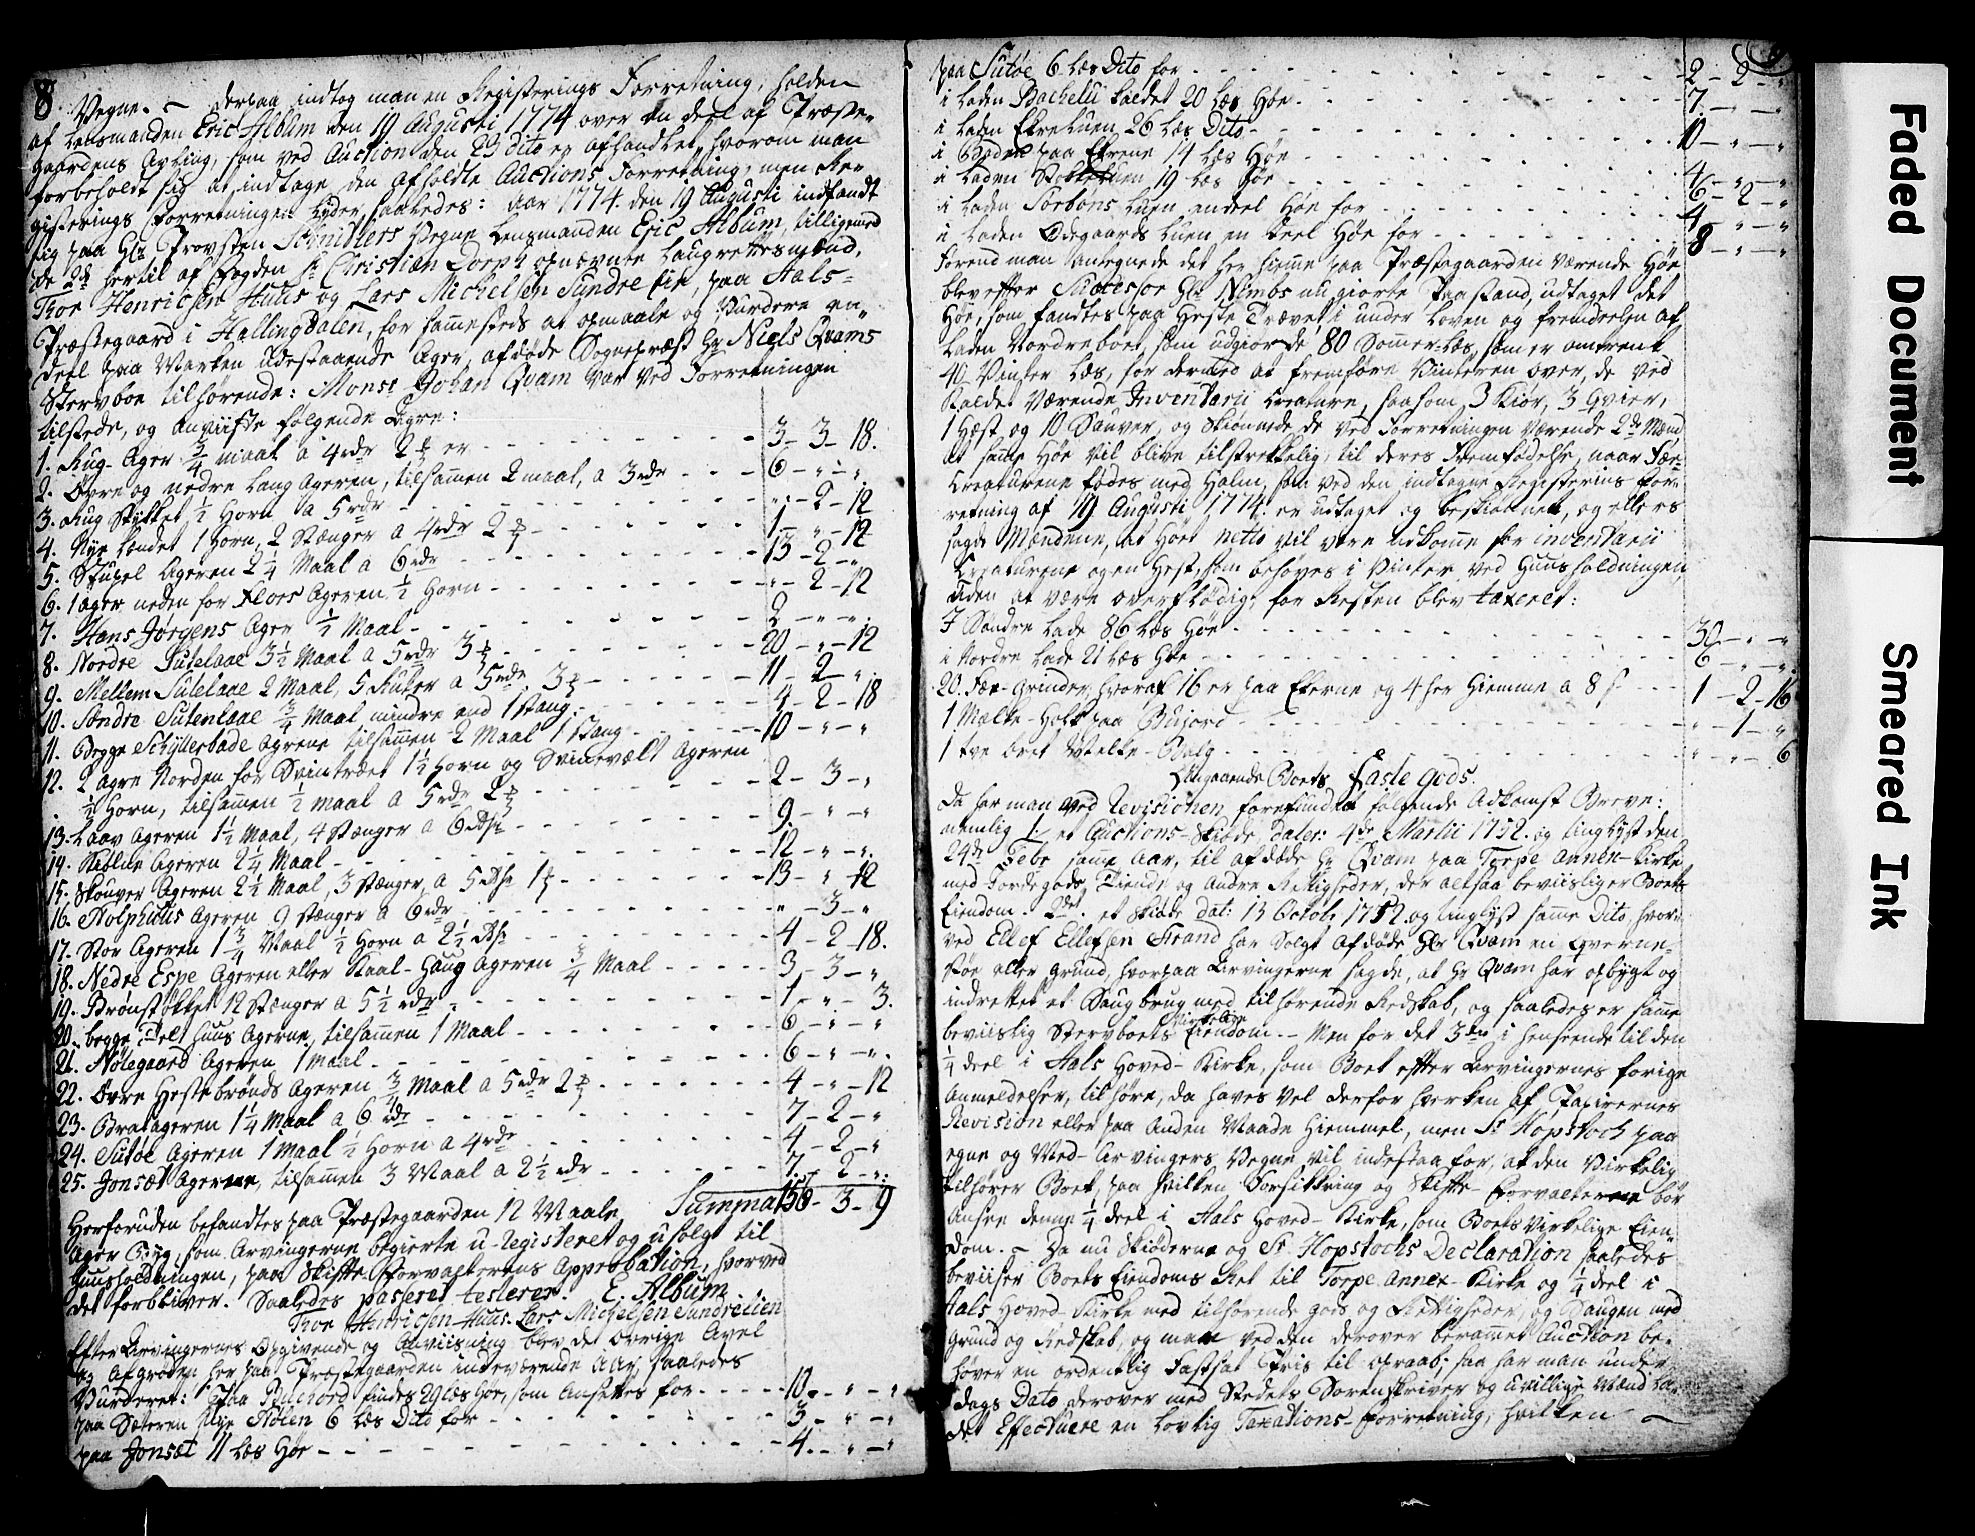 8.
Vegne. – derpaa indtog man en Registerings Forretning, holden
af Lensmanden Eric Album den 19 Augusti 1774 over en deel af Præste-
gaardens Avling, som ved Auction den 23 dito er afhandlet, hvorom man
forbeholdt sig at indtage den afholdte Auctions Forretning, men Re-
gisterings Forretningen lyder saaledes: Aar 1774 den 19 Augusti indfandt
sig paa Hr Provsten Schnidlers Vegne Lensmanden Eric Album, tilligemed
de 2de hertil af Fogden Sr Christian Dorph opnævnte Laugrettesmænd,
Thor Henrichsen Huus og Lars Michelsen Sundrelien, paa Aals-
Præstegaard i Hallingdalen, for sammesteds at opmaale og Vurdere en
deel paa Marken Udestaaende Ager, afdøde Sognepræst Hr Niels Qvams
Stervboe tilhørende: Monsr Johan Qvam var ved Forretningen
tilstede, og anviiste følgende Agre:
1. Rug-Ager 3/4 maal a 4 rdr 2 er - - - 3 - 3 - 18.
2. Øvre og nedre Lang Ageren, tilsammen 2 maal, a 3 rdr - - - 6 - " - "
3. Rug Stykket 1/2 Horn a 5 rdr - - - " - 2 - 12
4. Nye Landet 1 Horn, 2 Stænger a 4 rdr 2 - - - 1 - " - 12
5. Stupel Ageren 2 1/4 Maal a 6 rdr - - - 13 - 2 - "
6. 1 ager neden for Floer Ageren 1/2 Horn - - - " - 2 - 12
7. Hans Jørgens Ager 1/2 Maal - - - 2 - " - "
8. Nordre Sutelaae 3 1/2 Maal a 5 rdr 3 - - - 20 - " - 12
9. Mellem Sutelaae 2 Maal, 5 Ruter a 5 rdr 3 - - - 11 - 2 - "
10. Søndre Sutenlaae 3/4 Maal mindre end 1 Stang - - - 4 - 2 - 18
11. Begge Schyllerbade Agrene tilsammen 2 Maal 1 Stang - - - 10 - " - "
12. 2 Agre Norden for Svintrædet 1 1/2 Horn og Svinevælt Ageren
1/2 Horn, tilsammen 1/2 maal a 5 rdr 2 - - - 2 - 3 - "
13. Laav Ageren 1 1/2 Maal, 4 Stænger a 6 Rdr - - - 9 - " - "
14. Ageren 2 1/4 Maal - - - 12 - " - "
15. Skouver Ageren 2 1/2 Maal, 3 Stænger, a 5 Rdr 1 - - - 13 - " - 12
16. Ageren 9 Stænger a 6 rdr - - - " - 3 - "
17. Stor Ageren 1 3/4 Maal 1/2 Horn a 2 1/2 Rdr - - - 4 - 2 - 18.
18. Nedre Espe Ageren eller Kaal-Haug Ageren 3/4 Maal - - - 3 - 3 - "
19. Brønstøkket 12 Stænger a 5 1/2 rdr - - - 1 - " - 3.
20. begge Huus Agerne, tilsammen 1 Maal - - - 6 - " - "
21. Nølegaard Ageren 1 Maal - - - 6 - " - "
22. Øvre Hestebrønds Ageren 3/4 Maal a 5 rdr 2 - - - 4 - " - 12
23. Bratageren 1 1/4 Maal a 6 rdr - - - 7 - 2 - "
24. Sutøe Ageren 1 Maal 1/2 Horn a 4 rdr - - - 4 - 2 - "
25. Jonsæt Agerne, tilsammen 3 Maal a 2 1/2 rdr - - - 7 - 2 - "
Summa 158 - 3 - 9
Herforuden befandtes paa Præstegaarden 12 Maale
Ager Byg, som Arvingerne begierte u-registeret og usolgt til
Huusholdningen, paa Skifte-Forvalternes Approbation, hvorved
det forbliver. Saaledes paseret testerer. E. Album
Thor Henrichsen Huus. Lars Michelsen Sundrelien
Efter Arvingernes Opgivende og Anviisning blev det øvrige Avel
og Afgrøden her paa Præstegaarden indeværende Aar, saaledes
Vurderet: Paa findes 29 Læs Høe, som Ansettes for - - - 10 - " - "
paa Sæteren Nye Stølen 6 Læs Dito for - - - 3 - " - "
paa Jonsæt 11 Læs Høe - - - 4 - " - "
paa Sutøe 6 Læs Dito for - - - 2 - 2 - "
i Laden Bachelii kaldet 20 Læs Høe - - - 7 - " - "
i Laden Ekreluen 26 Læs Dito - - - 10 - " - "
i Boden paa Ekrene 14 Læs Høe
i Laden 19 Læs Høe - - - 4 - " - "
i Laden Torbons Luen endeel Høe for - - - 6 - 2 - "
i Laden Ødegaards Luen en deel Høe for - - - 4 - " - "
8 - " - "
Førend man Antegnede det her hiemme paa Præstegaarden Værende Høe
blev efter Successor Hr Nimbs nu giorte Paastand, udtaget det
Høe, som fandtes paa Heste Trævet, i under Loven og fremdeelen af
Laden Nordreboer, som udgiorde 80 Sommer-Læs, som er omtrent
40 Vinter Læs, for dermed at fremføre Vinteren over, de ved
Staldet Værende Inventarii Creature, saasom 3 Kiør, 3 Qvier,
1 Hæst og 10 Sauver, og Skiønnede de ved Forretningen Værende 2de Mænd
at samme Høe vil blive tilstrekkelig til deres Fremfødelse, naar Fæe-
Creaturene fødes med Halm, som ved den indtagne Registerins For-
retning af 19 Augusti 1774 er udtaget og beskiønnet, og ellers
sagde Mændene, at Høet netto vil være udkomme for inventarii
Creaturene og en Hest, som behøves i Vinter ved Huusholdningen,
uden at være overflødig; for Resten blev taxeret:
I Søndre Lade 86 Læs Høe - - - 30 - " - "
i Nordre Lade 21 Læs Høe - - - 6 - " - "
20. Fæe-Grinder, hvoraf 16 er paa Ekerne og 4 her Hiemme a 8 s - - - 1 - 2 - 16
1 Mælke-Holk paa Bujord - - - " - 1 - "
1 tve Øret Melke-Balg - - - " - " - 6
Angaaende Boets Faste gods.
Da har man ved Revisionen forefundet følgende Adkomst Breve:
nemlig 1. et Auctions-Skiøde, dater: 4de Martii 1752. og tinglyst den
24de Febr samme Aar, til afdøde Hr Qvam paa Torpe Annex-Kirke
med Jordegods, Tiende og Andre Rettigheder, der altsaa beviisliger Boets
Eiendom. 2det. et Skiøde dat: 13 Octobr 1752 og tinglyst samme Dito, hvor-
ved Ellef Ellefsen Strand har Solgt Afdøde Hr Qvam en Qverne-
støe eller Grund, hvorpaa Arvingerne sagde, at Hr Qvam har opbygt og
indrettet et Saugbrug med tilhørende Redskab, og saaledes er samme
beviislig Stervboets Virkelige Eiendom. – Men for det 3die i henseende til den
1/4 deel i Aals Hoved-Kirke, som Boet efter Arvingernes forige
Anmeldelser, tilhøre, da haves vel derfor hverken af Papirernes
Revision eller paa Anden Maade Hiemmel, men Sr Hopstoch paa
egne og Med-Arvingers Vegne vil indestaa for, at den Virkelig
tilhører Boet, paa hvilken Forsikkring og Skifte-Forvalterne bør
ansee denne 1/4 deel i Aals Hoved-Kirke, som Boets Virkelige Eien-
dom. – Da nu Skiøderne og Sr Hopstochs Declaration saaledes
beviiser Boets Eiendoms Ret til Torpe Annex-Kirke og 1/4 deel i
Aals Hoved-Kirke med tilhørende gods og Rettigheder, og Saugen med
Grund og Redskab, og man ved den derover berammet Auction be-
høver en ordentlig Fastsat Priis til opraab; saa har man under
dags Dato derover med Stedets Sorenskriver og uvillige Mænd la-
det Effectuere en lovlig Taxations-Forretning, hvilken –
Faded Document
Smeared Ink